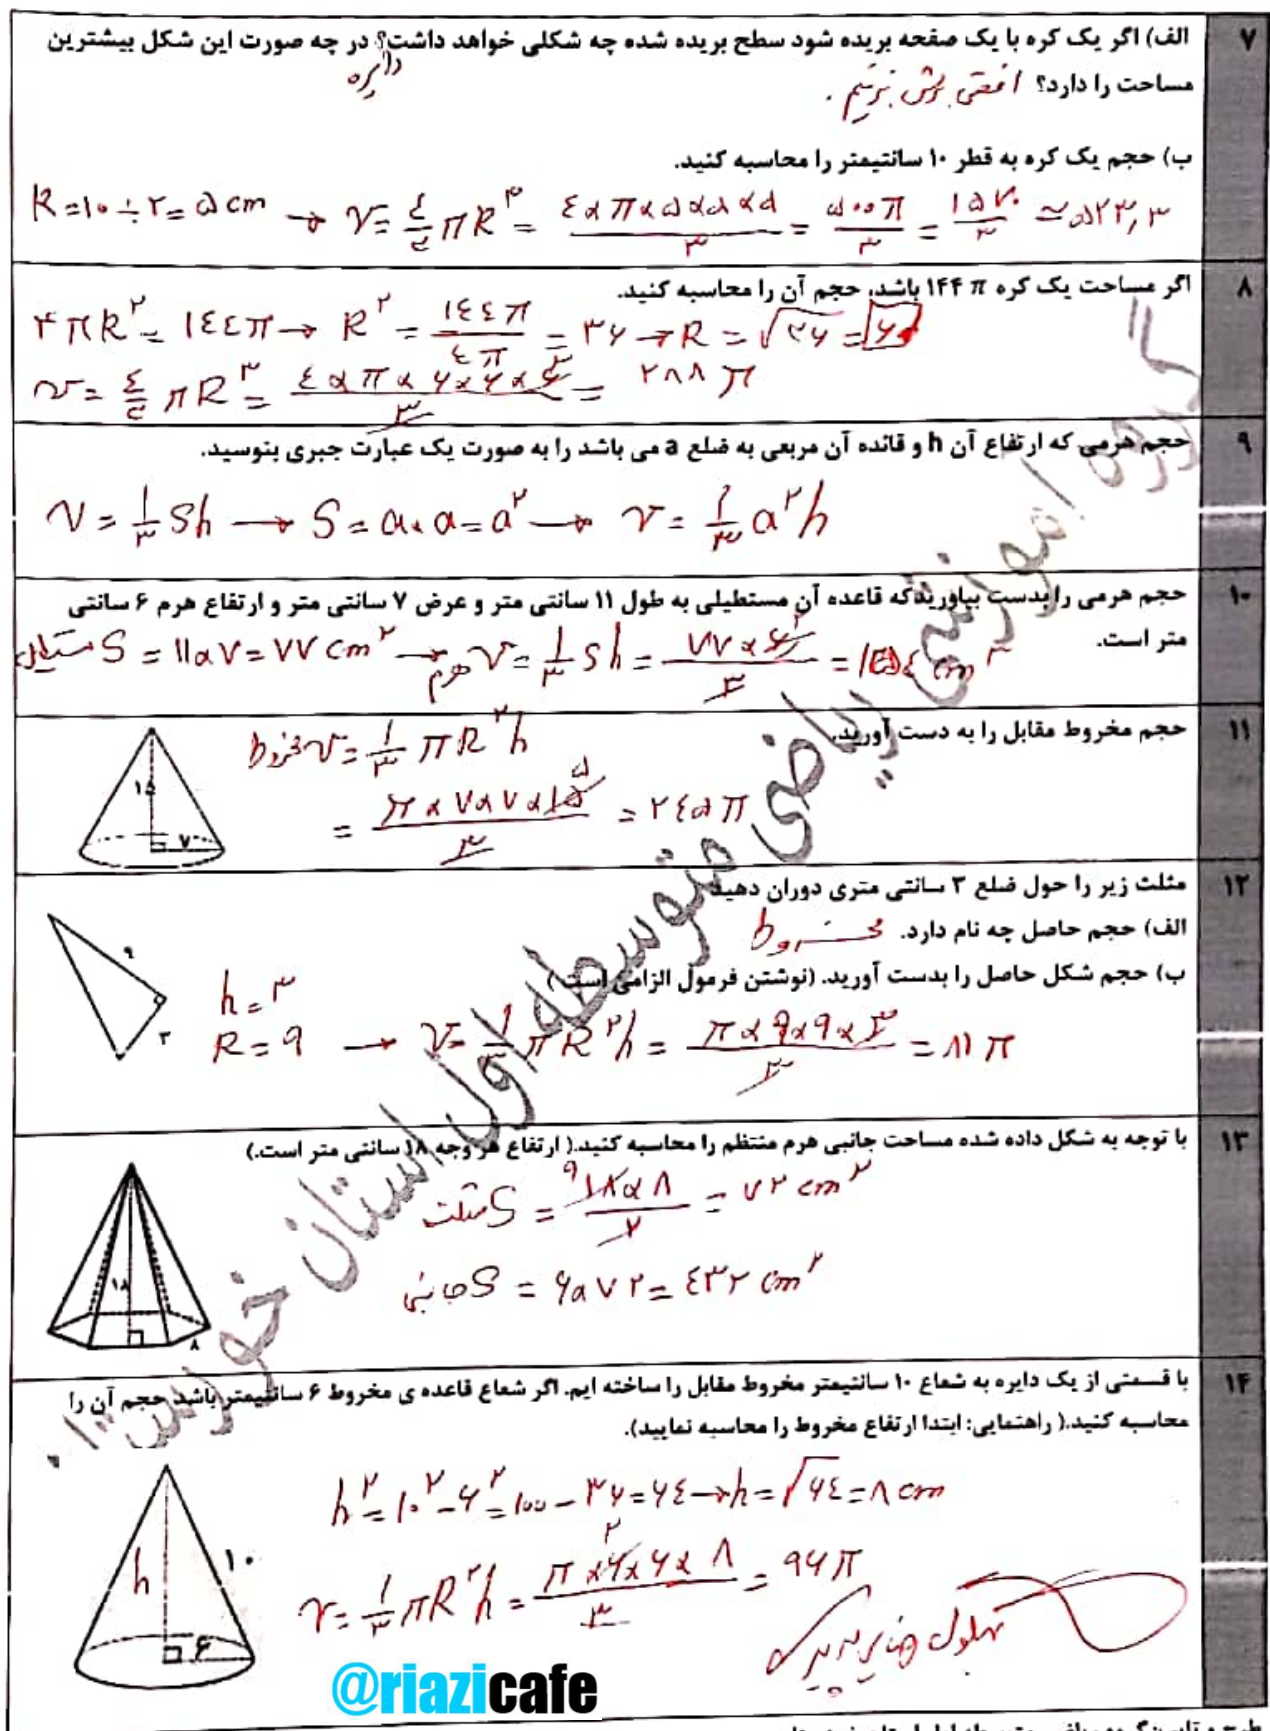 ۷ الف) اگر یک کره با یک صفحه بریده شود سطح بریده شده چه شکلی خواهد داشت؟ در چه صورت این شکل بیشترین
دایره
مساحت را دارد؟ افقی برش بزنیم .
ب) حجم یک کره به قطر ۱۰ سانتیمتر را محاسبه کنید.
R=۱۰÷۲=۵ cm → V=۴/۳ πR^۳ = ۴×π×۵×۵×۵/۳ = ۵۰۰π/۳ = ۱۵۷۰/۳ ≃ ۵۲۳,۳
۸ اگر مساحت یک کره ۱۴۴ π باشد، حجم آن را محاسبه کنید.
۴πR^۲ = ۱۴۴π → R^۲ = ۱۴۴π/۴π = ۳۶ → R = √۳۶ = ۶
V = ۴/۳ πR^۳ = ۴×π×۶×۶×۶/۳ = ۲۸۸π
۹ حجم هرمی که ارتفاع آن h و قائده آن مربعی به ضلع a می باشد را به صورت یک عبارت جبری بنوسید.
V = ۱/۳ Sh → S = a×a = a^۲ → V = ۱/۳ a^۲h
۱۰ حجم هرمی را بدست بیاوریدکه قاعده آن مستطیلی به طول ۱۱ سانتی متر و عرض ۷ سانتی متر و ارتفاع هرم ۶ سانتی
متر است.
S مستطیل = ۱۱×۷=۷۷ cm^۲ → V هرم = ۱/۳ Sh = ۷۷×۶/۳ = ۱۵۴ cm^۳
۱۱ حجم مخروط مقابل را به دست آورید.
V مخروط = ۱/۳ πR^۲h
= π×۷×۷×۱۵/۳ = ۲۴۵π
۱۵
۷
۱۲ مثلث زیر را حول ضلع ۳ سانتی متری دوران دهید
الف) حجم حاصل چه نام دارد. مخروط
ب) حجم شکل حاصل را بدست آورید. (نوشتن فرمول الزامی است)
۹
۳
h=۳
R=۹ → V=۱/۳ πR^۲h = π×۹×۹×۳/۳ = ۸۱π
۱۳ با توجه به شکل داده شده مساحت جانبی هرم منتظم را محاسبه کنید.( ارتفاع هر وجه ۱۸ سانتی متر است.)
S مثلث = ۱۸×۸/۲ = ۷۲ cm^۲
S جانبی = ۶×۷۲=۴۳۲ cm^۲
۱۸
۸
۱۴ با قسمتی از یک دایره به شعاع ۱۰ سانتیمتر مخروط مقابل را ساخته ایم. اگر شعاع قاعده ی مخروط ۶ سانتیمتر باشد حجم آن را
محاسبه کنید.( راهنمایی: ابتدا ارتفاع مخروط را محاسبه نمایید).
h^۲=۱۰^۲-۶^۲=۱۰۰-۳۶=۶۴→h=√۶۴=۸ cm
V=۱/۳ πR^۲h = π×۶×۶×۸/۳ = ۹۶π
h
۱۰
۶
@riazicafe
گروه آموزشی ریاضی متوسطه اول استان